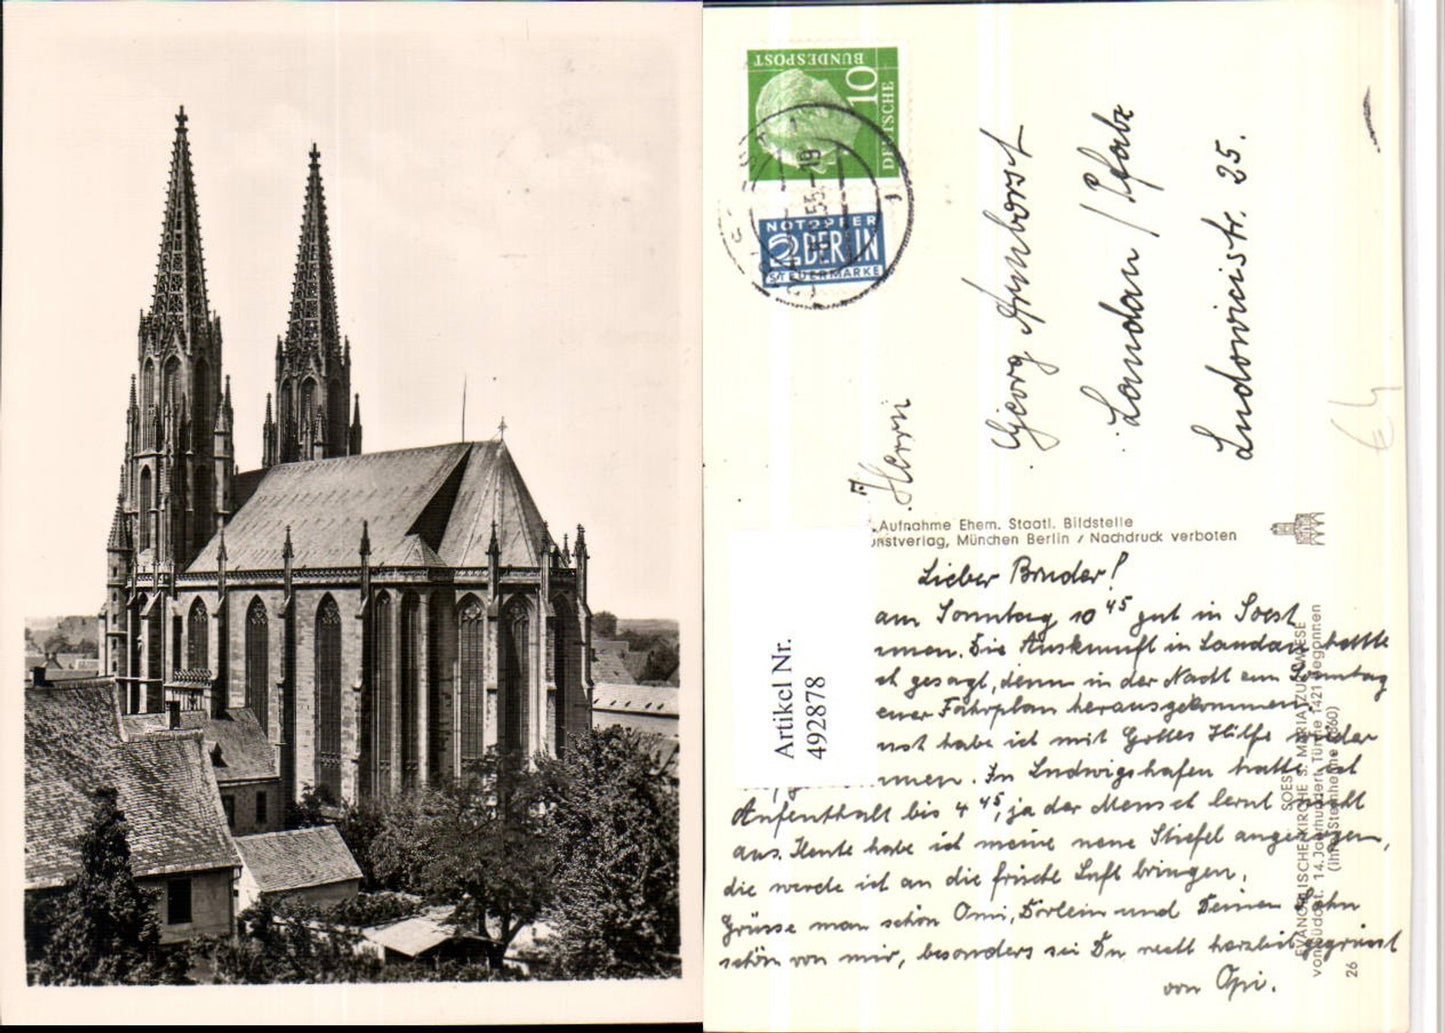 DEUTSCHE
BUNDESPOST
10
NOTOPFER
2 BERLIN
STEUERMARKE
55.-19
Herrn
Georg Armborst
Landau / Pfalz
Ludowicistr. 25.
Aufnahme Ehem. Staatl. Bildstelle
nstverlag, München Berlin / Nachdruck verboten
Artikel Nr.
492878
Lieber Bruder!
am Sonntag 10 45 gut in Soest
mmen. Die Auskunft in Landau hatte
ch gesagt, denn in der Nacht zum Sonntag
euer Fahrplan herausgekommen.
nst habe ich mit Gottes Hilfe
mmen. In Ludwigshafen hatte ich
Aufenthalt bis 4 45, ja der Mensch lernt nicht
aus. Heute habe ich meine neue Stiefel angezogen,
die werde ich an die frische Luft bringen.
Grüsse man schön Omi, und Deinen Sohn
schön von mir, besonders sei Du recht herzlich gegrüsst
von Opi.
SOEST
EVANGELISCHE KIRCHE S. MARIA ZUR WIESE
von Südost. 14. Jahrhundert, Türme 1421 begonnen
26